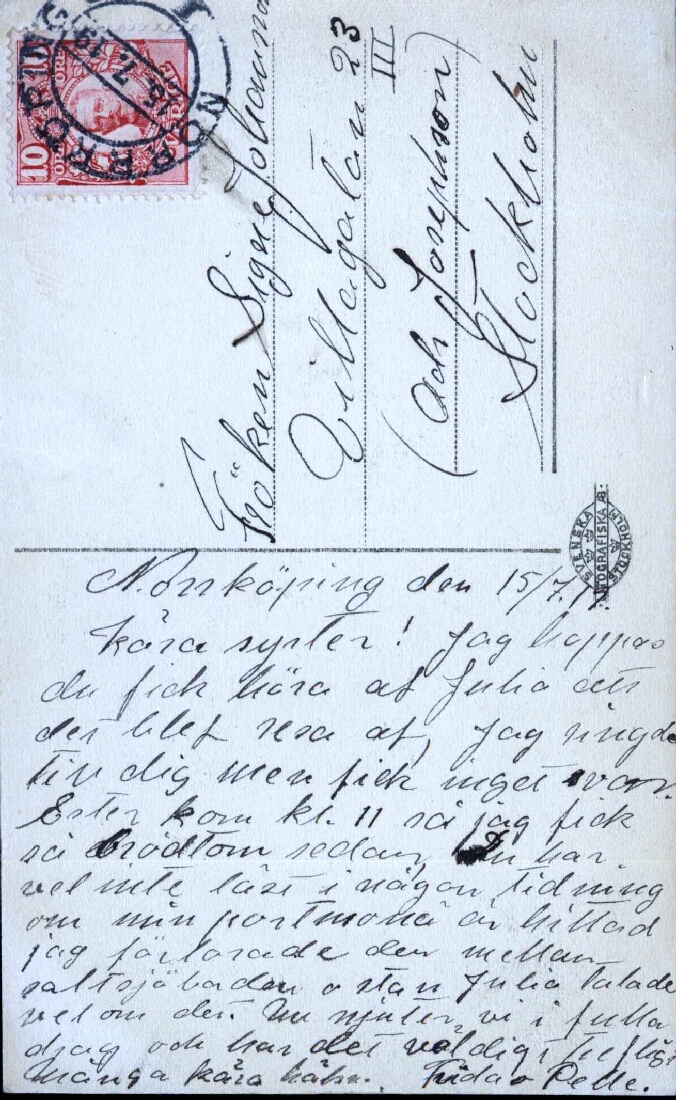 NORRKÖPING 1
15 7 19
10 ÖRE 10
SVERIGE
Fröken Signe Johanna
Lillagatan 23
III
(adr Josephson)
Stockholm
SVENSKA
LITOGRAFISKA AB.
STOCKHOLM
Norrköping den 15/7.
Kära syster! Jag hoppas
du fick höra af Julia att
det blef resa af, Jag ringde
till dig men fick inget svar.
Ester kom kl. 11 så jag fick
så brådtom sedan, Du har
vel inte läst i någon tidning
om min portmonä är hittad
jag förlorade den mellan
saltsjöbaden o stan Julia talade
vel om det. Nu njuter vi i fulla
drag och har det väldigt trefligt
Många kära häls. Frida o Pelle.